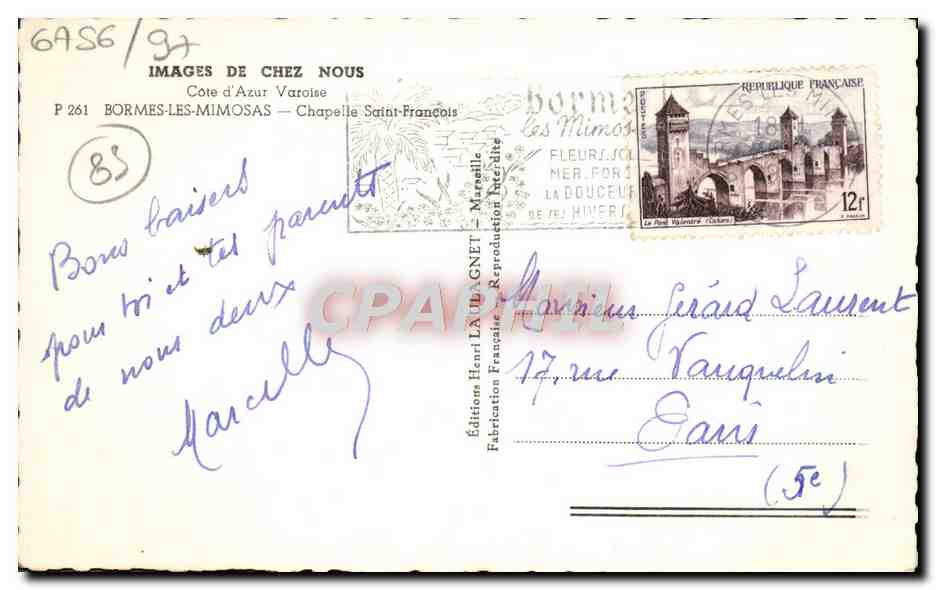 6AS6/97
IMAGES DE CHEZ NOUS
Côte d'Azur Varoise
P 261 BORMES-LES-MIMOSAS — Chapelle Saint-François
83
Bons baisers
pour toi et tes parents
de nous deux
Marcelle
Éditions Henri LAULAGNET - Marseille
Fabrication Française - Reproduction Interdite
CPAPHIL
borme
les Mimos
FLEURS.SOL
MER.FOR
LA DOUCEUR
DE SES HIVERS
RÉPUBLIQUE FRANÇAISE
POSTES
18
Le Pont Valentré (Cahors)
12f
Monsieur Gérard Laurent
17, rue Vauquelin
Paris
(5e)